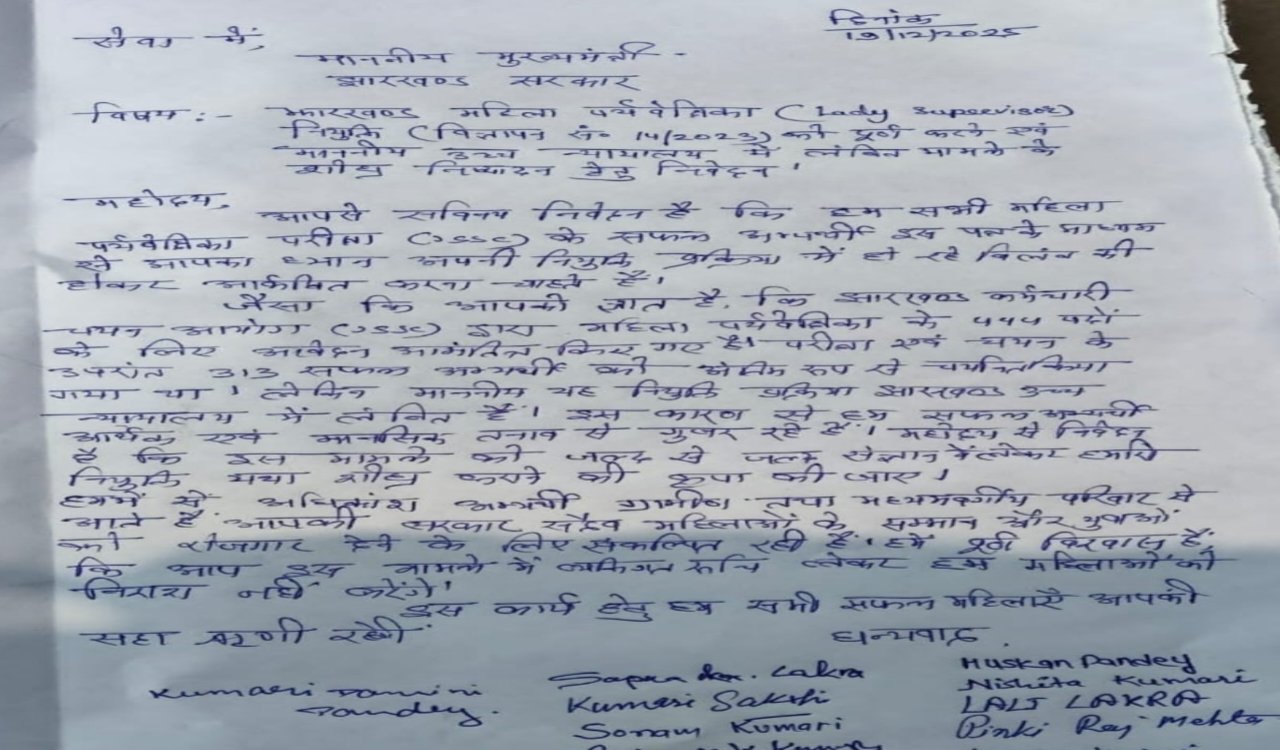 दिनांक
19/12/2025
सेवा में,
माननीय मुख्यमंत्री -
झारखण्ड सरकार
विषय :- झारखण्ड महिला पर्यवेक्षिका (Lady Supervisor)
नियुक्ति (विज्ञापन सं० 14/2023) को पूर्ण करने एवं
माननीय उच्च न्यायालय में लंबित मामले के
शीघ्र निष्पादन हेतु निवेदन।
महोदय,
आपसे सविनय निवेदन है कि हम सभी महिला
पर्यवेक्षिका परीक्षा (JSSC) के सफल अभ्यर्थी इस पत्र के माध्यम
से आपका ध्यान अपनी नियुक्ति प्रक्रिया में हो रहे विलंब की
होकर आकर्षित करना चाहते हैं।
जैसा कि आपको ज्ञात है, कि झारखण्ड कर्मचारी
चयन आयोग (JSSC) द्वारा महिला पर्यवेक्षिका के 444 पदों
के लिए आवेदन आमंत्रित किए गए है। परीक्षा एवं चयन के
उपरांत 313 सफल अभ्यर्थी को अंतिम रूप से चयनित किया
गया था। लेकिन माननीय यह नियुक्ति प्रक्रिया झारखण्ड उच्च
न्यायालय में लंबित है। इस कारण से हम सफल अभ्यर्थी
आर्थिक एवं मानसिक तनाव से गुजर रहे हैं। महोदय से निवेदन
है कि इस मामले को जल्द से जल्द संज्ञान में लेकर हमारी
नियुक्ति यथा शीघ्र कराने की कृपा की जाए।
हममें से अधिकांश अभ्यर्थी ग्रामीण तथा मध्यमवर्गीय परिवार से
आते हैं आपकी सरकार सदैव महिलाओं के सम्मान और युवाओं
को रोजगार देने के लिए संकल्पित रही हैं। हमें पूर्ण विश्वास हैं
कि आप इस मामले में व्यक्तिगत रूचि लेकर हमें महिलाओं को
निराश नहीं करेंगे।
इस कार्य हेतु हम सभी सफल महिलाएँ आपकी
सदा ऋणी रहेगी
धन्यवाद.
Kumari Damini
Pandey.
Sapna Lakra
Kumari Sakshi
Sonam Kumari
Muskan Pandey
Nishita Kumari
LALI LAKRA
Pinki Raj Mehta